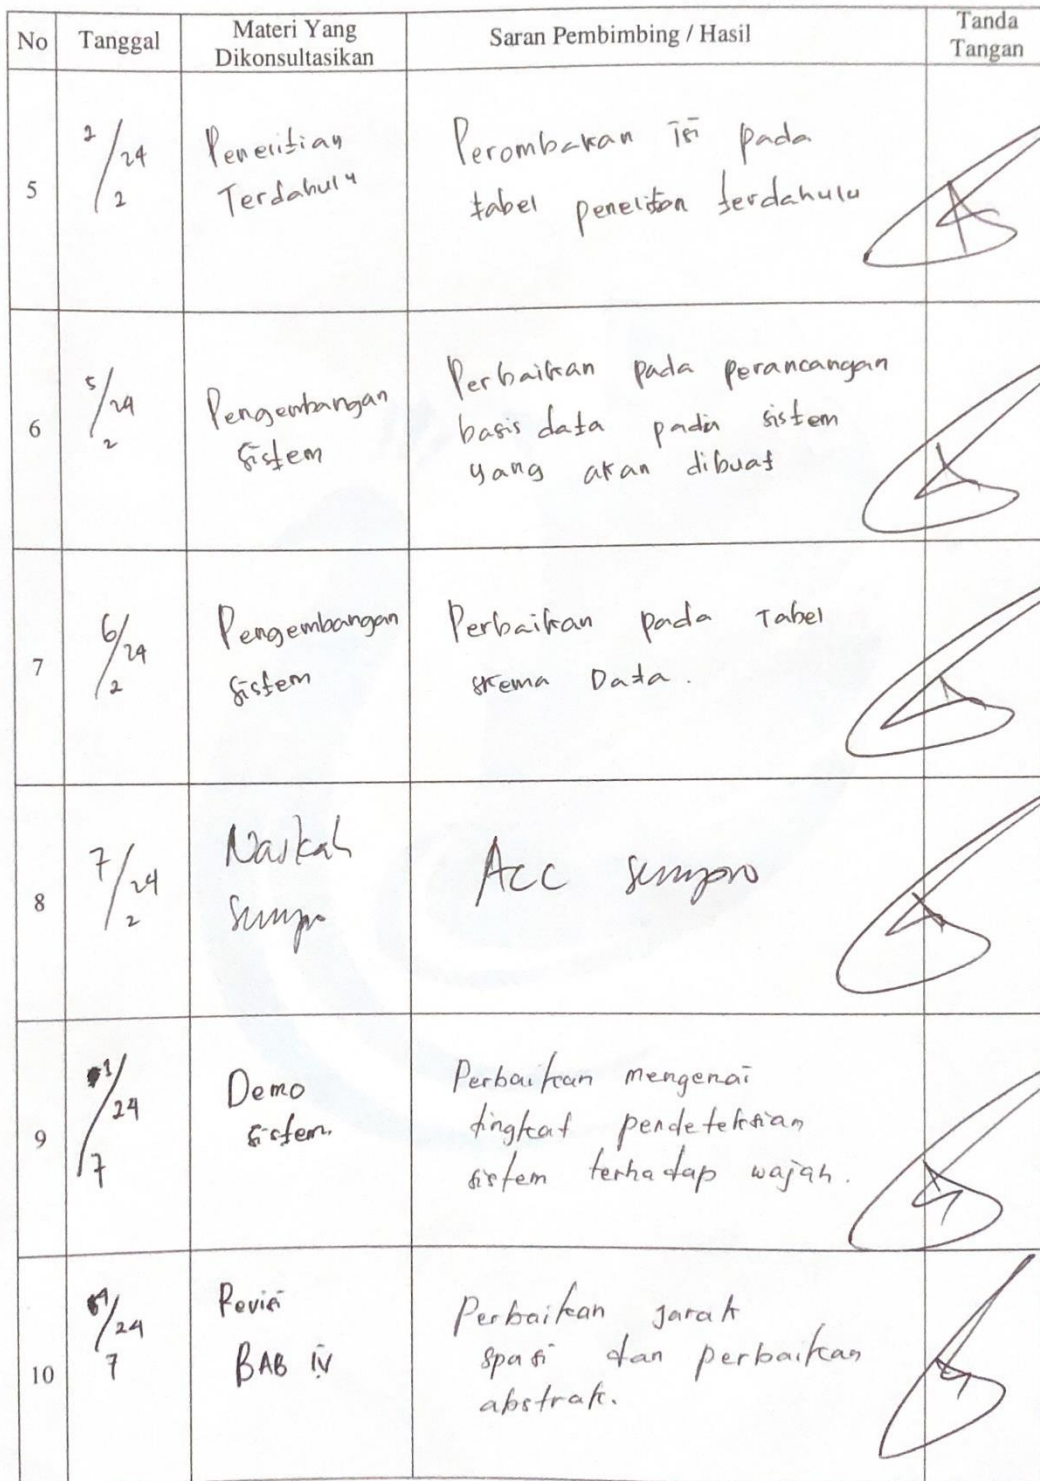 No Tanggal Materi Yang Dikonsultasikan Saran Pembimbing / Hasil Tanda Tangan
5 2/2 24 Penelitian Perombakan isi pada
Terdahulu tabel penelitian terdahulu
6 5/2 24 Pengembangan Perbaikan pada perancangan
sistem basis data pada sistem
yang akan dibuat
7 6/2 24 Pengembangan Perbaikan pada Tabel
sistem skema Data.
8 7/2 24 Naskah Acc sempro
sempro
9 1/7 24 Demo Perbaikan mengenai
sistem. tingkat pendeteksian
sistem terhadap wajah.
10 /7 24 Revisi Perbaikan jarak
BAB IV spasi dan perbaikan
abstrak.